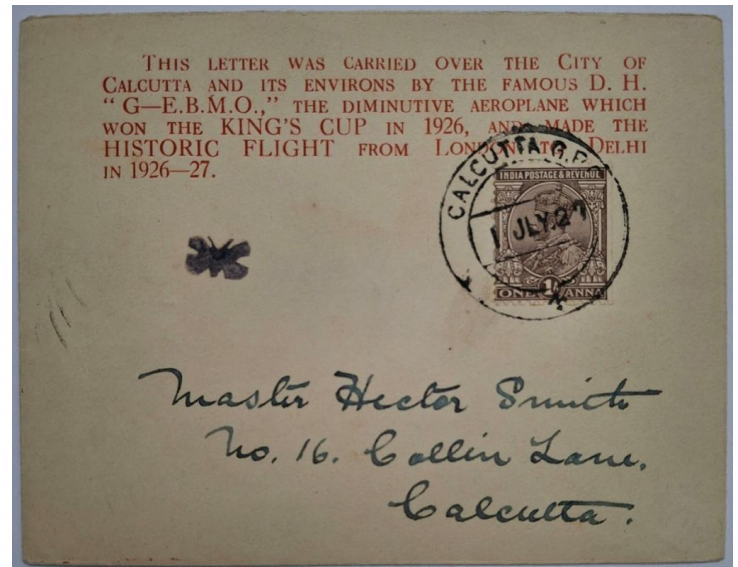 THIS LETTER WAS CARRIED OVER THE CITY OF
CALCUTTA AND ITS ENVIRONS BY THE FAMOUS D. H.
“ G—E.B.M.O.,” THE DIMINUTIVE AEROPLANE WHICH
WON THE KING'S CUP IN 1926, AND MADE THE
HISTORIC FLIGHT FROM LONDON TO DELHI
IN 1926—27.
CALCUTTA G.P.O
INDIA POSTAGE & REVENUE
1 JLY.27
ONE 1A ANNA
Master Hector Smith
No. 16. Collin Lane.
Calcutta.